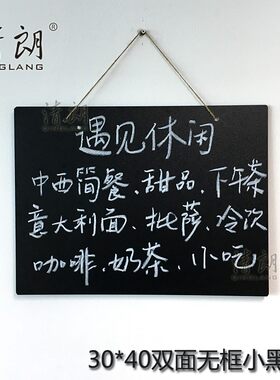 清朗®
QINGLANG
清朗
遇见休闲
中西简餐、甜品、下午茶
意大利面、批萨、冷饮
咖啡、奶茶、小吃
30*40双面无框小黑